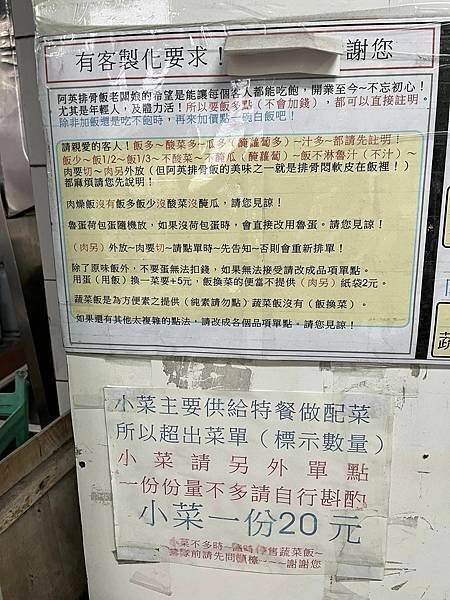 有客製化要求！
謝您
阿英排骨飯老闆娘的希望是能讓每個客人都能吃飽，開業至今~不忘初心！
尤其是年輕人，及體力活！所以要飯多點（不會加錢），都可以直接註明。
除非加飯還是吃不飽時，再來加價點一碗白飯吧！
請親愛的客人！飯多~酸菜多~瓜多（醃蘿蔔多）~汁多~都請先註明！
飯少~飯1/2~飯1/3~不酸菜~不醃瓜（醃蘿蔔）~飯不淋魯汁（不汁）~
肉要切~肉另外放（但阿英排骨飯的美味之一就是排骨悶軟皮在飯裡！）
都麻煩請您先說明！
肉燥飯沒有飯多飯少沒酸菜沒醃瓜，請您見諒！
魯蛋荷包蛋隨機放，如果沒荷包蛋時，會直接改用魯蛋。請您見諒！
（肉另）外放~肉要切~請點單時~先告知~否則會重新排單！
除了原味飯外，不要蛋無法扣錢，如果無法接受請改成品項單點。
用蛋（用飯）換一菜要+5元，飯換菜的便當不提供（肉另）紙袋2元。
蔬菜飯是為方便素之提供（純素請勿點）蔬菜飯沒有（飯換菜）。
如果還有其他太複雜的點法，請改成各個品項單點。請您見諒！
小菜主要供給特餐做配菜
所以超出菜單（標示數量）
小菜請另外單點
一份份量不多請自行斟酌
小菜一份20元
小菜不多時~隨時停售蔬菜飯~
排隊前請先問櫃檯~~~謝謝您
蔬